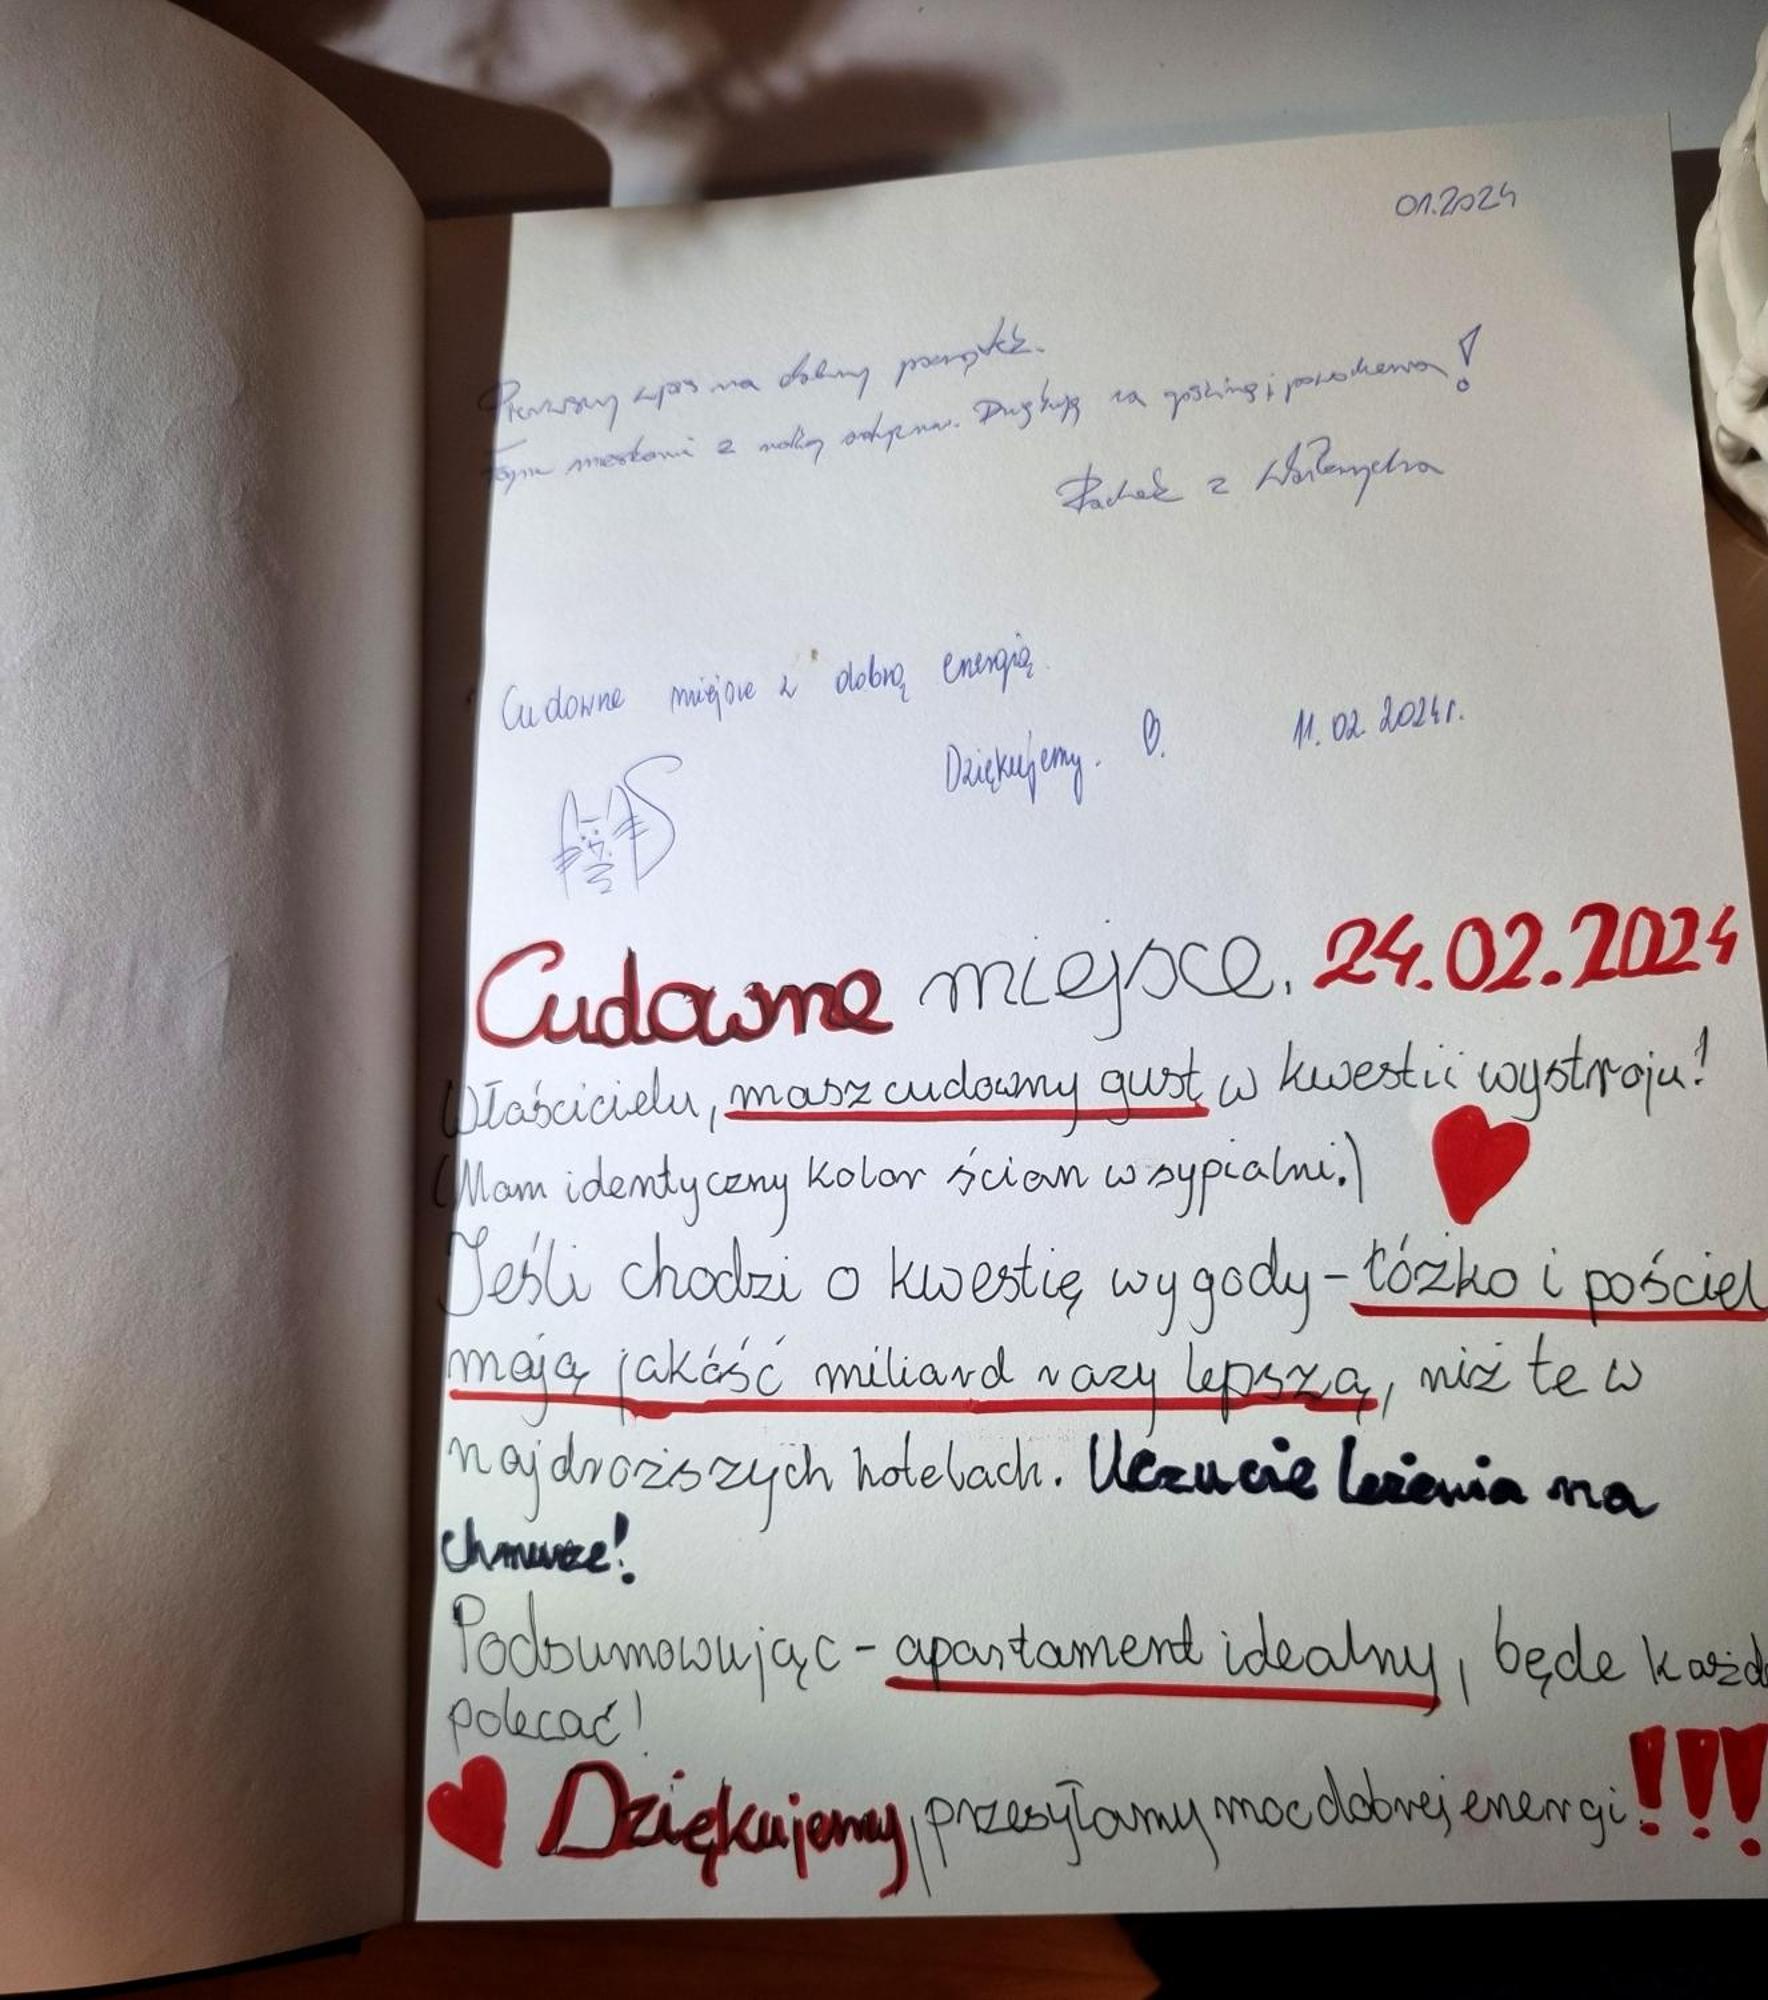 01.2024
Pierwszy wpis na dobry początek.
Fajne z Dziękuję za gościnę i
z
Cudowne miejsce z dobrą energią.
Dziękujemy. 11.02.2024r.
Cudowne miejsce. 24.02.2024
Właścicielu, masz cudowny gust w kwestii wystroju!
(Mam identyczny kolor ścian w sypialni.)
Jeśli chodzi o kwestię wygody - łóżko i pościel
mają jakość miliard razy lepszą, niż te w
najdroższych hotelach. Uczucie leżenia na
chmurze!
Podsumowując - apartament idealny, będe każd
polecać!
Dziękujemy, przesyłamy moc dobrej energi!!!